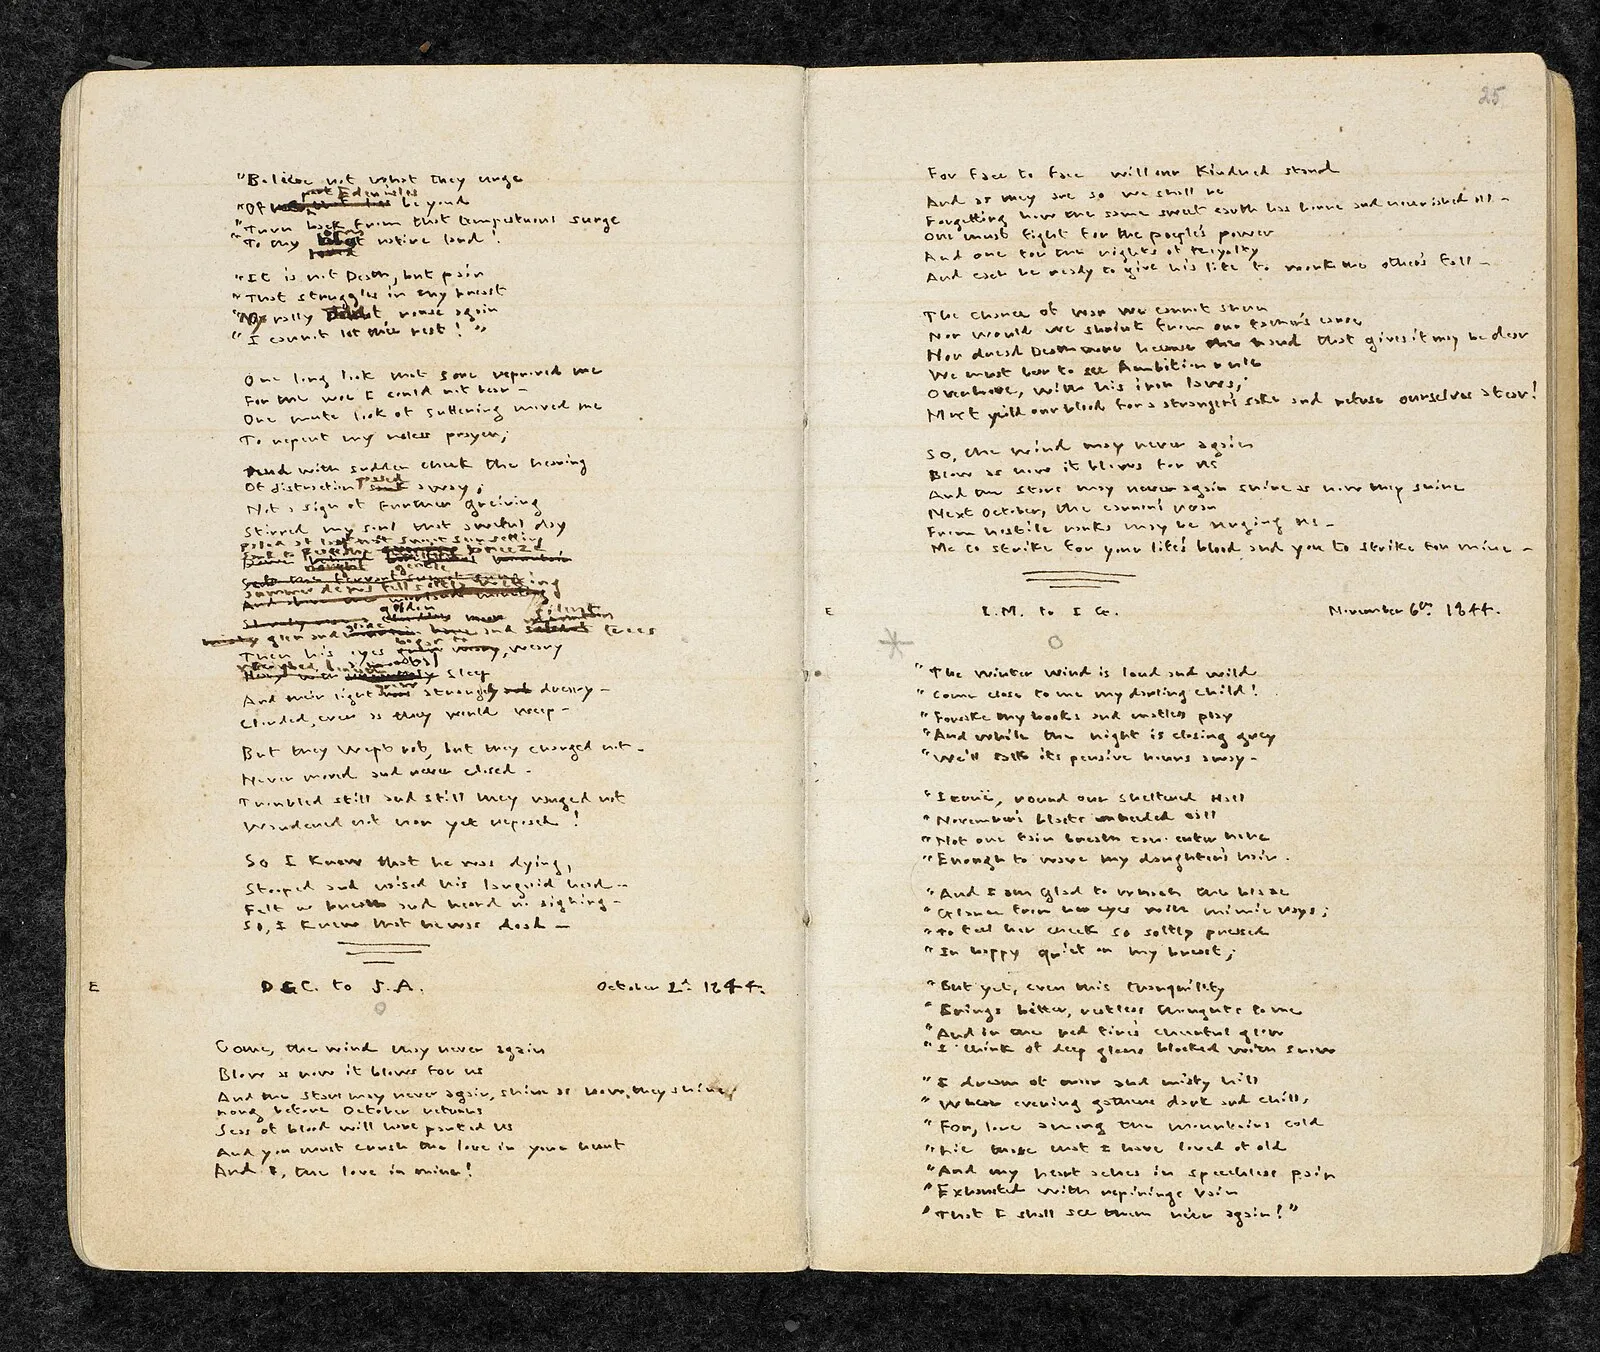 "Believe not what they urge
past Eden isles
"Of beyond
"Turn back from that tempestuous surge
"To thy native land!
"It is not Death, but pain
"That struggles in thy breast
rally rouse again
"I cannot let thee rest!"
One long look that sore reproved me
For the woe I could not bear —
One mute look of suffering moved me
To repent my useless prayer;
And with sudden check the heaving
Of distraction passed away;
Not a sign of further greiving
Stirred my soul that awful day
Paled at last the sweet sun setting
Sunk to peace the breeze
Summer dews fell softly wetting
golden silent
glen and glade and trees
began to
Then his eyes weary,
Weighed beneath a mortal sleep
And their light grew strangely dreary —
Clouded, even as they would weep —
But they wept not, but they changed not —
Never moved and never closed —
Troubled still and still they ranged not
Wandered not nor yet reposed!
So I knew that he was dying,
Stooped and raised his languid head —
Felt no breath and heard no sighing —
So, I knew that he was dead —
E D.G.C. to J.A. October 2d. 1844.
Come, the wind may never again
Blow as now it blows for us
And the stars may never again, shine as now, they shine,
Long before October returns
Seas of blood will have parted us
And you must crush the love in your heart
And I, the love in mine!
25
For face to face will our Kindred stand
And as they are so we shall be
Forgetting how the same sweet earth has borne and nourished all —
One must fight for the people's power
And one for the rights of royalty
And each be ready to give his life to work the other's fall —
The chance of war we cannot shun
Nor would we shrink from our Father's cause
Nor dread Death more because the hand that gives it may be dear
We must bear to see Ambition rule
Over love, with his iron laws;
Must yield our blood for a stranger's sake and refuse ourselves a tear!
So, the wind may never again
Blow as now it blows for us
And the stars may never again shine as now they shine
Next October, the cannon's roar
From hostile ranks may be urging us —
Me to strike for your life's blood, and you to strike for mine —
E I.M. to I.G. November 6th. 1844.
"The winter wind is loud and wild
"Come close to me my darling child!
"Forsake thy books and mateless play
"And while the night is closing grey
"We'll talk its pensive hours away —
"Iernë, round our sheltered Hall
"November's blasts unheeded call
"Not one fain breath can enter here
"Enough to wave my daughter's hair.
"And I am glad to watch the blaze
"Glance from her eyes with mimic rays;
"To feel her cheek so softly pressed
"In happy quiet on my breast;
"But yet, even this tranquility
"Brings bitter, restless thoughts to me
"And in the red fire's cheerful glow
"I think of deep glens blocked with snow
"I dream of moor and misty hill
"Where evening gathers dark and chill,
"For, lone among the mountains cold
"Lie those that I have loved of old
"And my heart aches in speechless pain
"Exhausted with repinings vain
"That I shall see them ne'er again!"